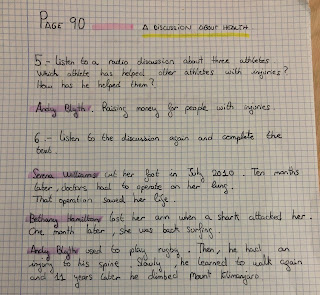 PAGE 90
A DISCUSSION ABOUT HEALTH
5.- Listen to a radio discussion about three athletes
Which athlete has helped other athletes with injuries?
How has he helped them?
Andy Blyth. Raising money for people with injuries
6.- Listen to the discussion again and complete the
text
Serena Williams cut her foot in July 2010. Ten months
later, doctors had to operate on her lung.
That operation saved her life.
Bethany Hamilton lost her arm when a shark attacked her.
One month later, she was back surfing.
Andy Blyth used to play rugby. Then, he had an
injury to his spine. Slowly, he learned to walk again
and 11 years later he climbed Mount Kilimanjaro